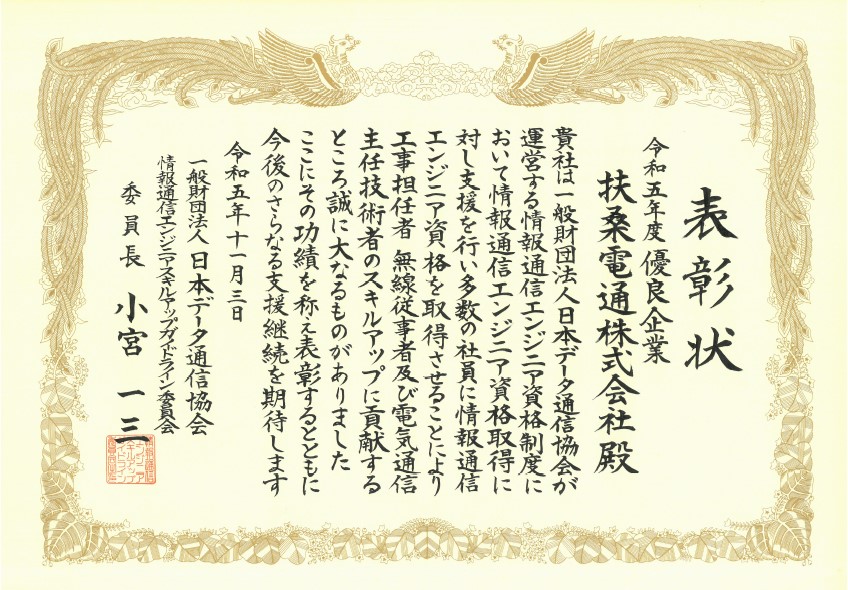 表彰状
令和五年度 優良企業
扶桑電通株式会社 殿
貴社は一般財団法人日本データ通信協会が
運営する情報通信エンジニア資格制度に
おいて情報通信エンジニア資格取得に
対し支援を行い多数の社員に情報通信
エンジニア資格を取得させることにより
工事担任者 無線従事者及び電気通信
主任技術者のスキルアップに貢献する
ところ誠に大なるものがありました
ここにその功績を称え表彰するとともに
今後のさらなる支援継続を期待します
令和五年十一月三日
一般財団法人 日本データ通信協会
情報通信エンジニアスキルアップガイドライン委員会
委員長 小宮 一三